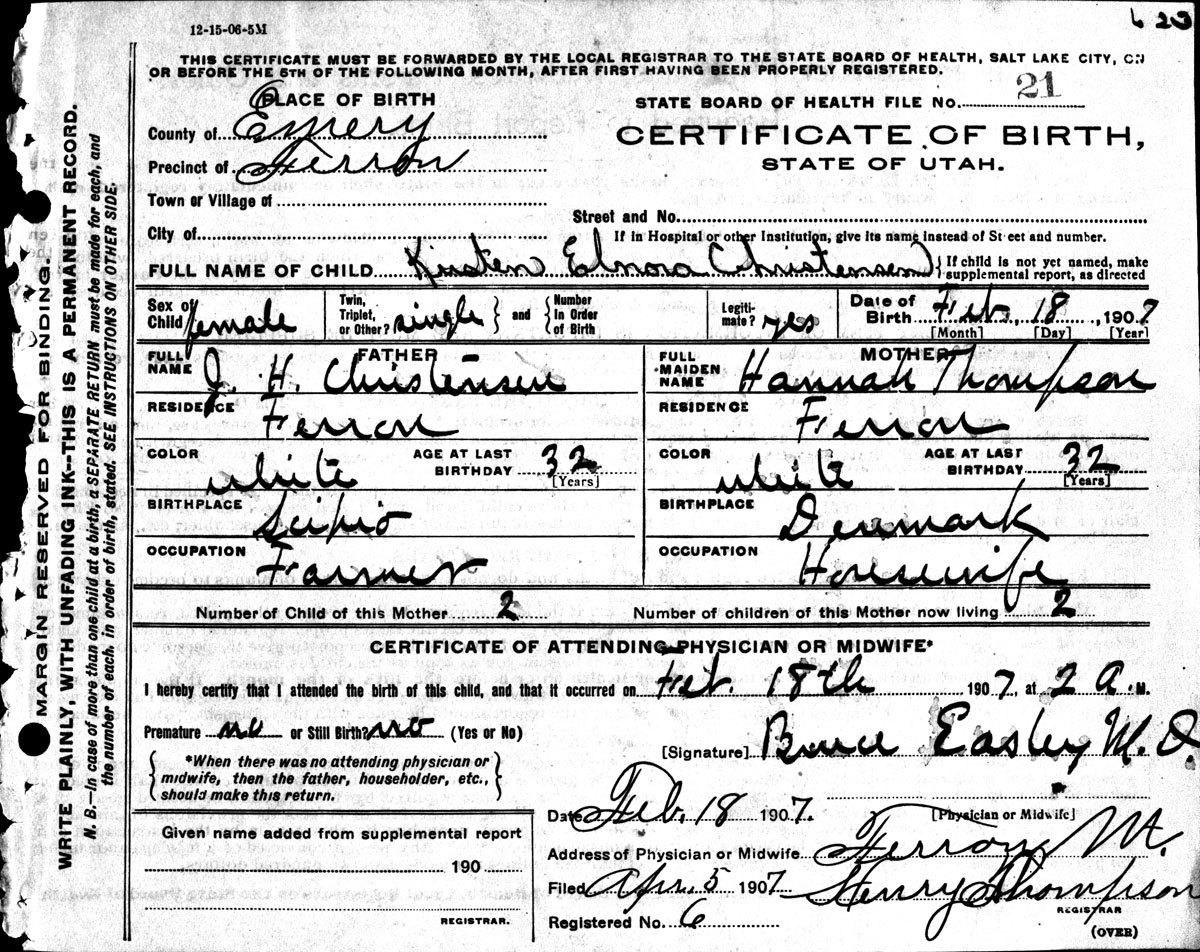 12-15-06-5M
623
THIS CERTIFICATE MUST BE FORWARDED BY THE LOCAL REGISTRAR TO THE STATE BOARD OF HEALTH, SALT LAKE CITY, ON
OR BEFORE THE 5TH OF THE FOLLOWING MONTH, AFTER FIRST HAVING BEEN PROPERLY REGISTERED.
PLACE OF BIRTH
STATE BOARD OF HEALTH FILE No. 21
County of Emery
CERTIFICATE OF BIRTH,
Precinct of Ferron
STATE OF UTAH.
Town or Village of
Street and No.
City of
If in Hospital or other Institution, give its name instead of St eet and number.
FULL NAME OF CHILD Kirsten Elnora Christensen } If child is not yet named, make
supplemental report, as directed
Sex of Child female Twin, Triplet, or Other? single } and { Number In Order of Birth Legiti- mate? yes Date of Birth Feb., 18, 1907
[Month] [Day] [Year]
FATHER
MOTHER
FULL NAME J. H. Christensen
FULL MAIDEN NAME Hannah Thompson
RESIDENCE Ferron
RESIDENCE Ferron
COLOR white AGE AT LAST BIRTHDAY 32 [Years]
COLOR white AGE AT LAST BIRTHDAY 32 [Years]
BIRTHPLACE Scipio
BIRTHPLACE Denmark
OCCUPATION Farmer
OCCUPATION Housewife
Number of Child of this Mother 2 Number of children of this Mother now living 2
CERTIFICATE OF ATTENDING PHYSICIAN OR MIDWIFE*
I hereby certify that I attended the birth of this child, and that it occurred on Feb. 18th 1907, at 2 A. M.
Premature no or Still Birth? no (Yes or No)
[Signature] Bruce Easley M. D
{ *When there was no attending physician or
midwife, then the father, householder, etc.,
should make this return. }
Date Feb. 18 1907. [Physician or Midwife]
Given name added from supplemental report
190
REGISTRAR.
Address of Physician or Midwife Ferron Ut.
Filed Apr. 5 1907 Henry Thompson
REGISTRAR
Registered No. 6
(OVER)
MARGIN RESERVED FOR BINDING.
WRITE PLAINLY, WITH UNFADING INK--THIS IS A PERMANENT RECORD.
N. B.—In case of more than one child at a birth, a SEPARATE RETURN must be made for each, and
the number of each, in order of birth, stated. SEE INSTRUCTIONS ON OTHER SIDE.